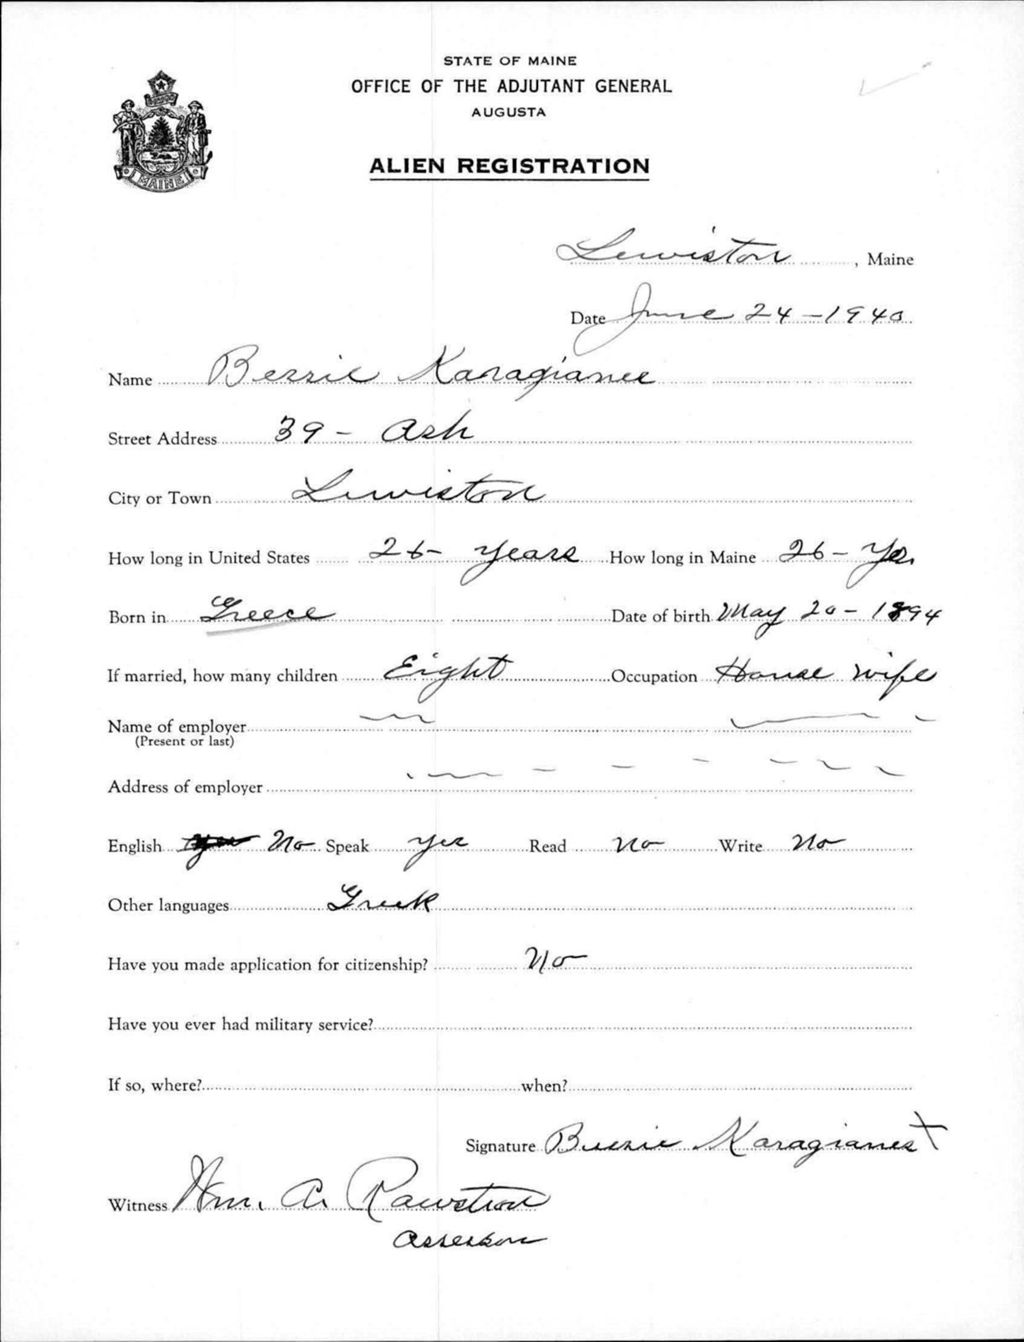 STATE OF MAINE
OFFICE OF THE ADJUTANT GENERAL
AUGUSTA
MAINE
ALIEN REGISTRATION
Lewiston, Maine
Date June 24-1940
Name Bessie Karagianee
Street Address 39 - Ash
City or Town Lewiston
How long in United States 26- years How long in Maine 26- yrs.
Born in Greece Date of birth May 20-1894
If married, how many children Eight Occupation House wife
Name of employer
(Present or last)
Address of employer
English No Speak yes Read no Write No
Other languages Greek
Have you made application for citizenship? No
Have you ever had military service?
If so, where? when?
Signature Bessie Karagianes X
Witness Wm. A. Rawstron
Assessor